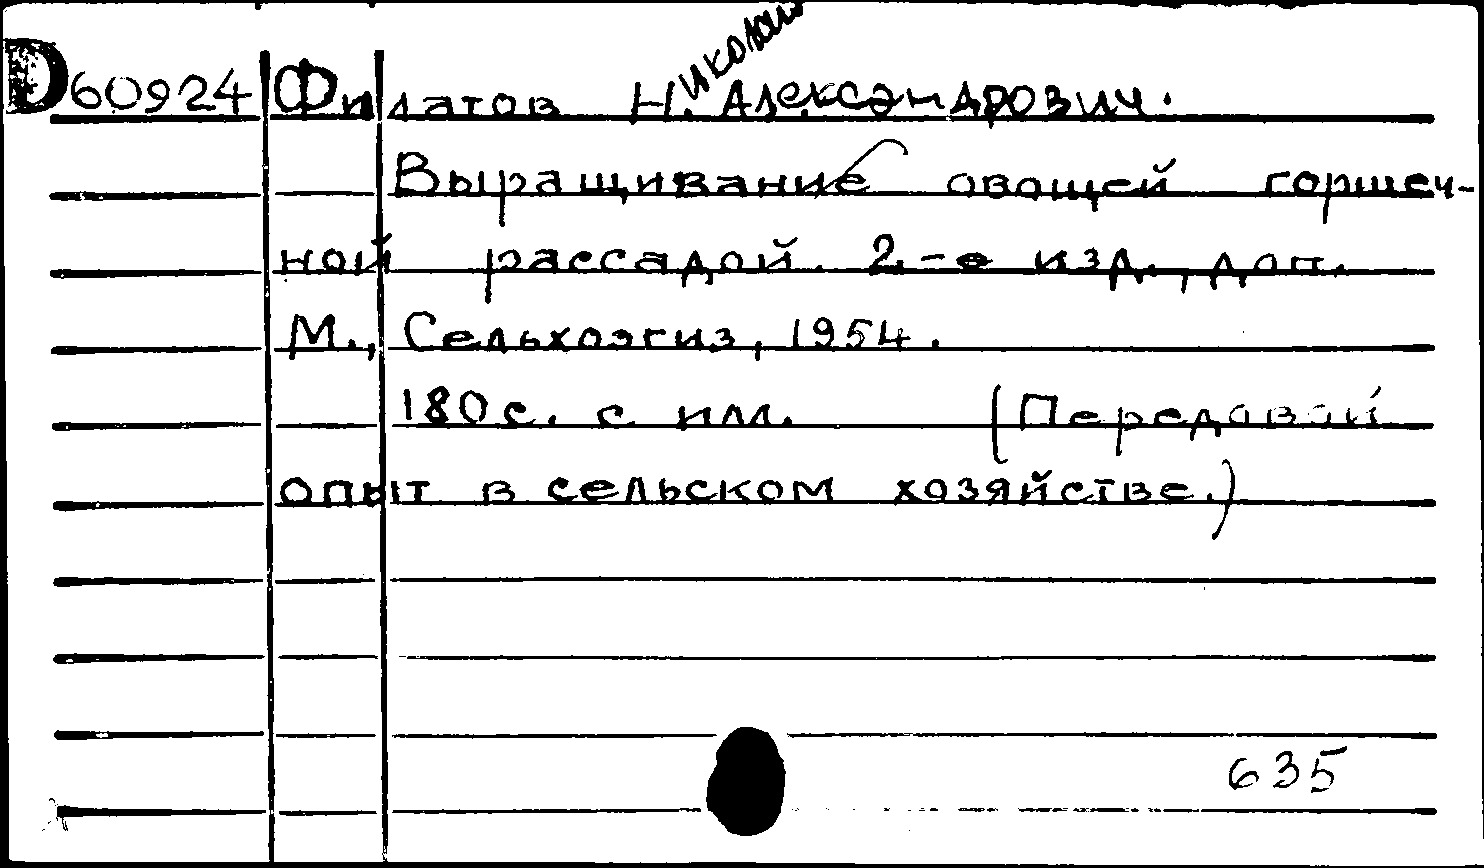 D60924 Филатов Николай Александрович.
Выращивание овощей горшеч-
ной рассадой. 2-е изд., доп.
М., Сельхозгиз, 1954.
180 с. с илл. (Передовой
опыт в сельском хозяйстве.)
635